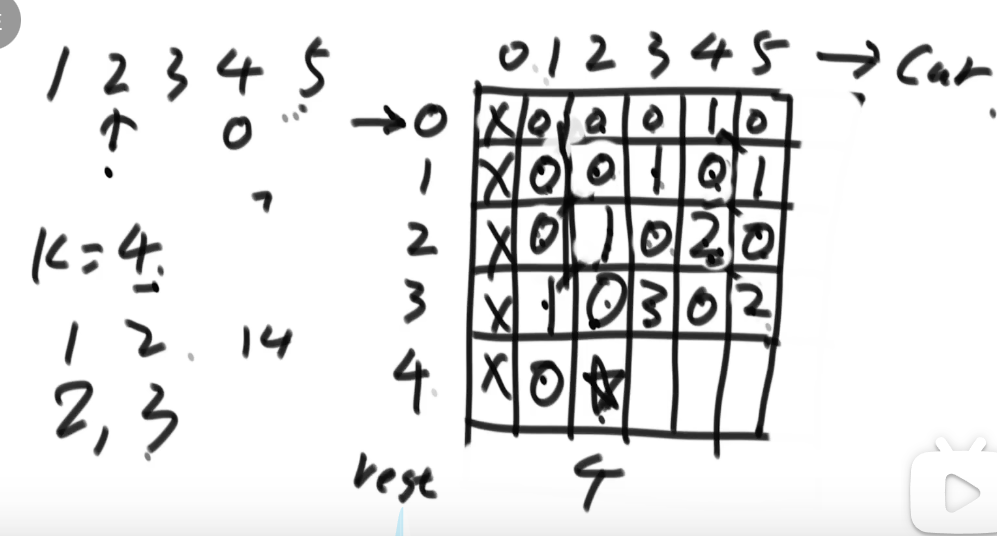 1 2 3 4 5
↑ 0
K = 4.
1 2 14
2, 3
0 1 2 3 4 5 → Cur
→ 0 X 0 0 0 1 0
1 X 0 0 1 0 1
2 X 0 1 0 2 0
3 X 1 0 3 0 2
4 X 0 ☆
rest 4